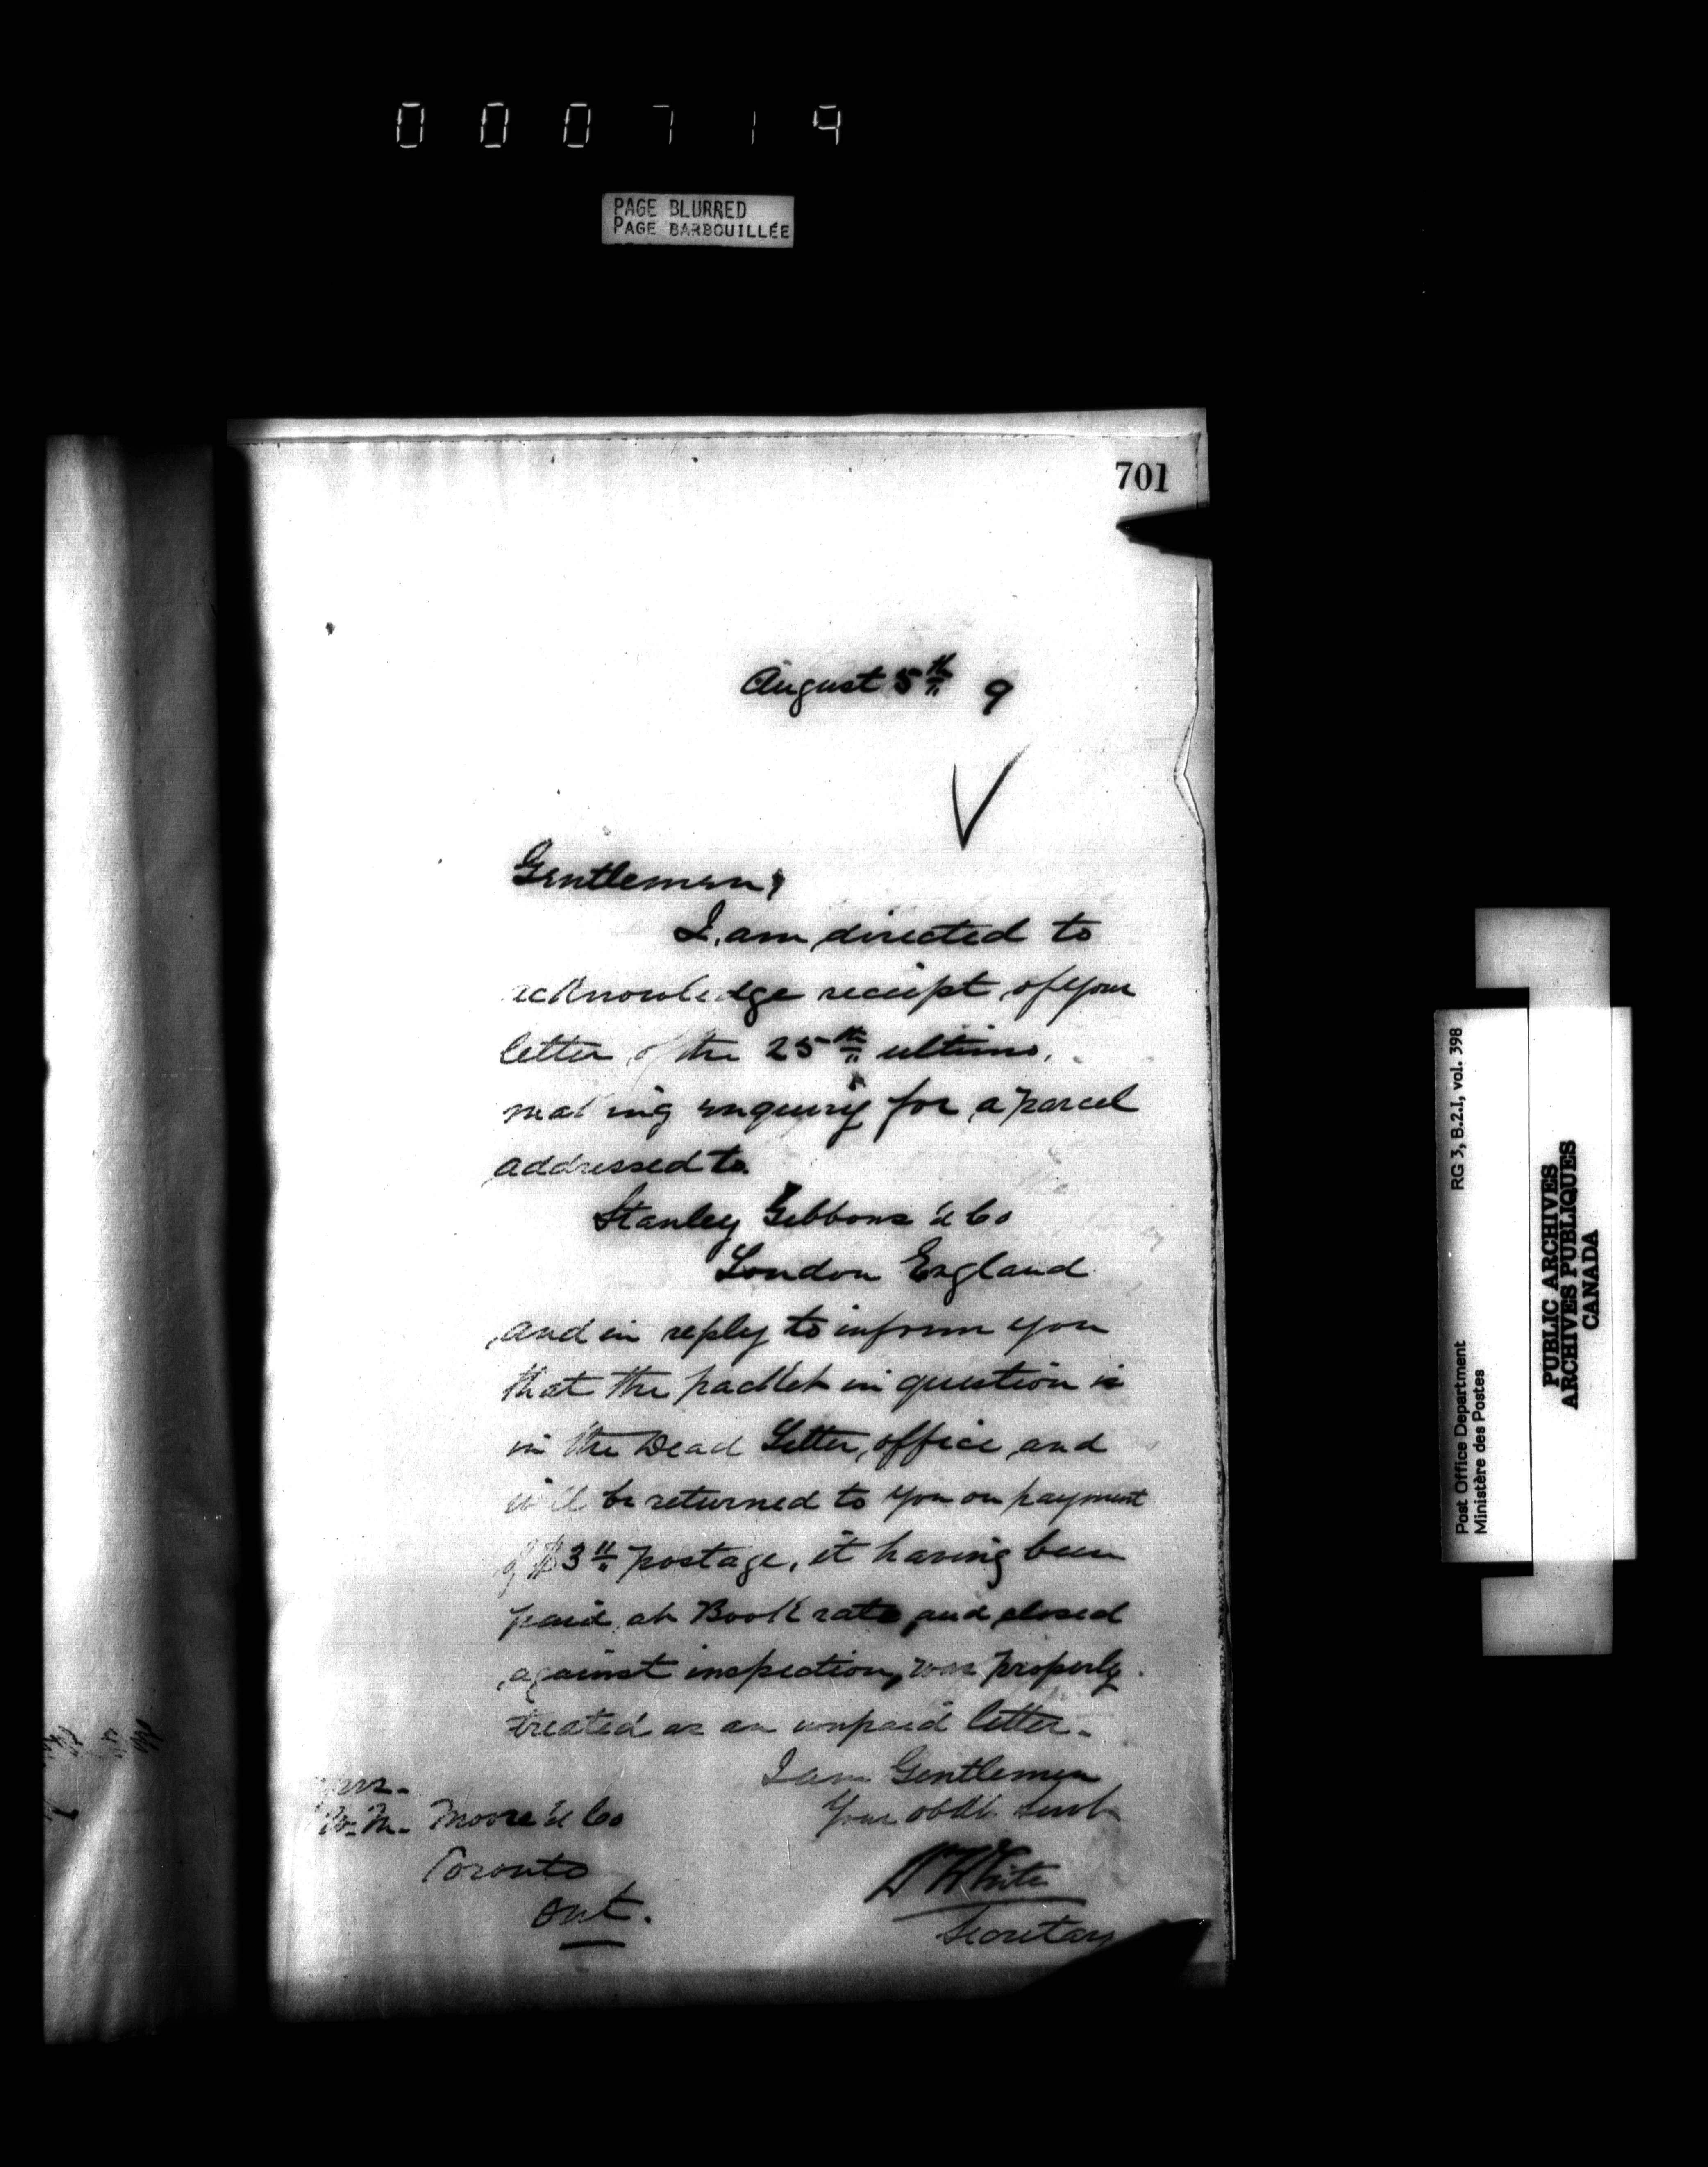 000719
PAGE BLURRED
PAGE BARBOUILLÉE
701
August 5th 9
Gentlemen,
I am directed to
acknowledge receipt of your
letter of the 25th ultimo,
making enquiry for a parcel
addressed to
Stanley Gibbons & Co
London England
and in reply to inform you
that the packet in question is
in the Dead Letter office and
will be returned to you on payment
of $3 postage, it having been
paid at Book rate and closed
against inspection, was properly
treated as an unpaid letter.
I am Gentlemen
Your obdt Servt
White
Secretary
Moore & Co
Toronto
Ont.
Post Office Department RG 3, B.2.1, vol. 398
Ministère des Postes
PUBLIC ARCHIVES
ARCHIVES PUBLIQUES
CANADA